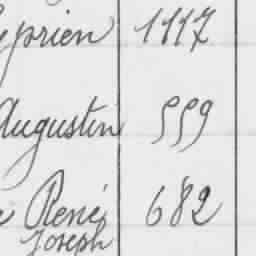 yprien 1117
Augustin 559
René 682
Joseph